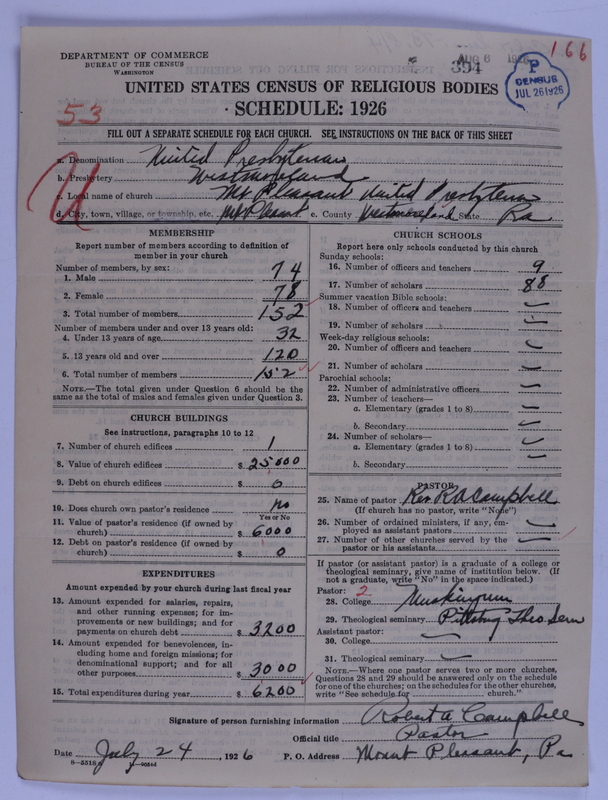 166
AUG 6 1926
394
P
CENSUS
JUL 26 1926
DEPARTMENT OF COMMERCE
BUREAU OF THE CENSUS
WASHINGTON
UNITED STATES CENSUS OF RELIGIOUS BODIES
SCHEDULE: 1926
53
FILL OUT A SEPARATE SCHEDULE FOR EACH CHURCH. SEE INSTRUCTIONS ON THE BACK OF THIS SHEET
a. Denomination United Presbyterian
b. Presbytery Westmoreland
c. Local name of church Mt Pleasant United Presbyterian
d. City, town, village, or township, etc. Mt Pleasant e. County Westmoreland State Pa
MEMBERSHIP
Report number of members according to definition of
member in your church
Number of members, by sex:
1. Male 74
2. Female 78
3. Total number of members 152
Number of members under and over 13 years old:
4. Under 13 years of age 32
5. 13 years old and over 120
6. Total number of members 152
NOTE.—The total given under Question 6 should be the
same as the total of males and females given under Question 3.
CHURCH BUILDINGS
See instructions, paragraphs 10 to 12
7. Number of church edifices 1
8. Value of church edifices $ 25000
9. Debt on church edifices $ 0
10. Does church own pastor's residence? no
Yes or No
11. Value of pastor's residence (if owned by
church) $ 6000
12. Debt on pastor's residence (if owned by
church) $ 0
EXPENDITURES
Amount expended by your church during last fiscal year
13. Amount expended for salaries, repairs,
and other running expenses; for im-
provements or new buildings; and for
payments on church debt $ 3200
14. Amount expended for benevolences, in-
cluding home and foreign missions; for
denominational support; and for all
other purposes $ 3000
15. Total expenditures during year $ 6200
CHURCH SCHOOLS
Report here only schools conducted by this church
Sunday schools:
16. Number of officers and teachers 9
17. Number of scholars 88
Summer vacation Bible schools:
18. Number of officers and teachers —
19. Number of scholars —
Week-day religious schools:
20. Number of officers and teachers —
21. Number of scholars —
Parochial schools:
22. Number of administrative officers —
23. Number of teachers—
a. Elementary (grades 1 to 8) —
b. Secondary —
24. Number of scholars—
a. Elementary (grades 1 to 8) —
b. Secondary —
PASTOR
25. Name of pastor Rev. R A Campbell
(If church has no pastor, write "None")
26. Number of ordained ministers, if any, em-
ployed as assistant pastors —
27. Number of other churches served by the
pastor or his assistants —
If pastor (or assistant pastor) is a graduate of a college or
theological seminary, give name of institution below. (If
not a graduate, write "No" in the space indicated.)
Pastor: 2
28. College Muskingum
29. Theological seminary Pittsburg Theo. Sem
Assistant pastor:
30. College —
31. Theological seminary —
NOTE.—Where one pastor serves two or more churches,
Questions 28 and 29 should be answered only on the schedule
for one of the churches; on the schedules for the other churches,
write "See schedule for church."
Signature of person furnishing information Robert A Campbell
Official title Pastor
Date July 24, 1926 P. O. Address Mount Pleasant, Pa